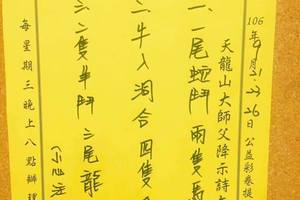 106年9月21.23.26日公益彩券提
天龍山大師父降示詩
一、一尾蛟鬥兩隻馬
二、牛入洞合四隻
三、二隻牛鬥三尾龍
(小心注
每星期三晚上八點辦理